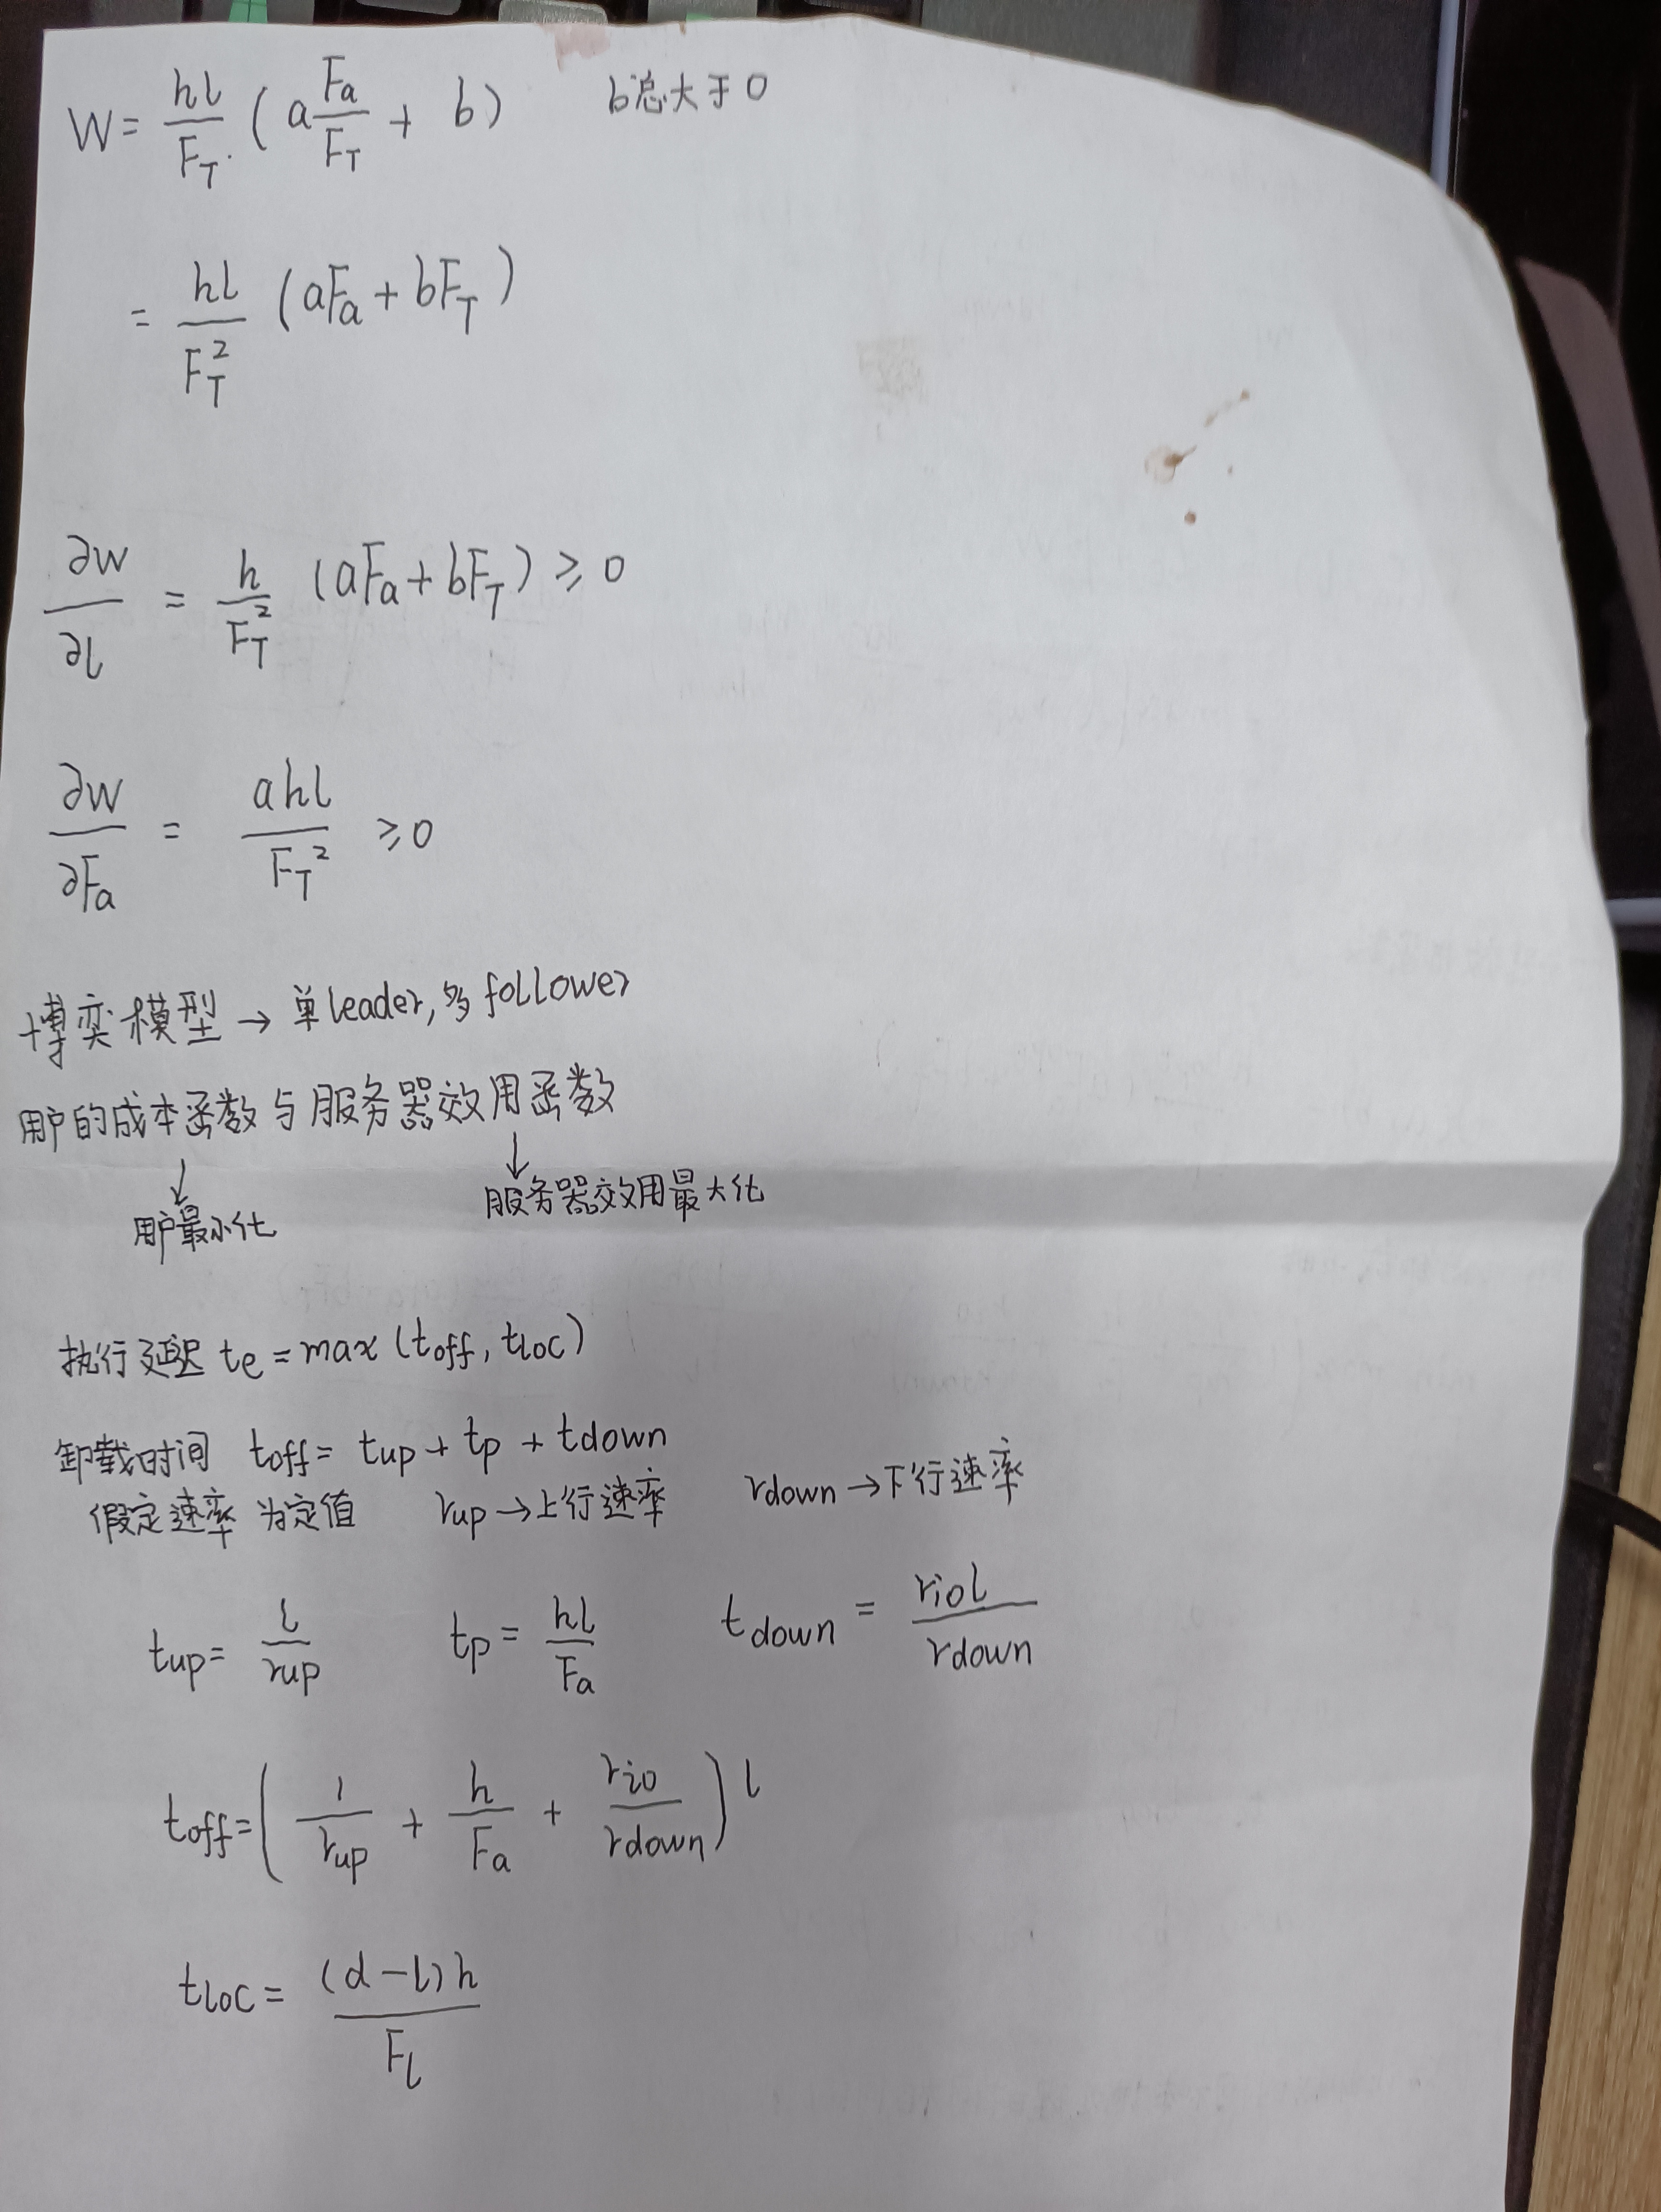 W = \frac{hl}{F_T} (a\frac{F_a}{F_T} + b) b总大于0
= \frac{hl}{F_T^2} (aF_a + bF_T)
\frac{∂W}{∂l} = \frac{h}{F_T^2} (aF_a + bF_T) ≥ 0
\frac{∂W}{∂F_a} = \frac{ahl}{F_T^2} ≥ 0
博弈模型 → 单leader, 多follower
用户的成本函数与服务器效用函数
↓ ↓
服务器效用最大化
用户最小化
执行延迟 t_e = max (t_off, t_loc)
卸载时间 t_off = t_up + t_p + t_down
假定速率为定值 r_up → 上行速率 r_down → 下行速率
t_up = \frac{l}{r_up} t_p = \frac{hl}{F_a} t_down = \frac{r_io l}{r_down}
t_off = (\frac{1}{r_up} + \frac{h}{F_a} + \frac{r_io}{r_down}) l
t_loc = \frac{(d-l)h}{F_l}